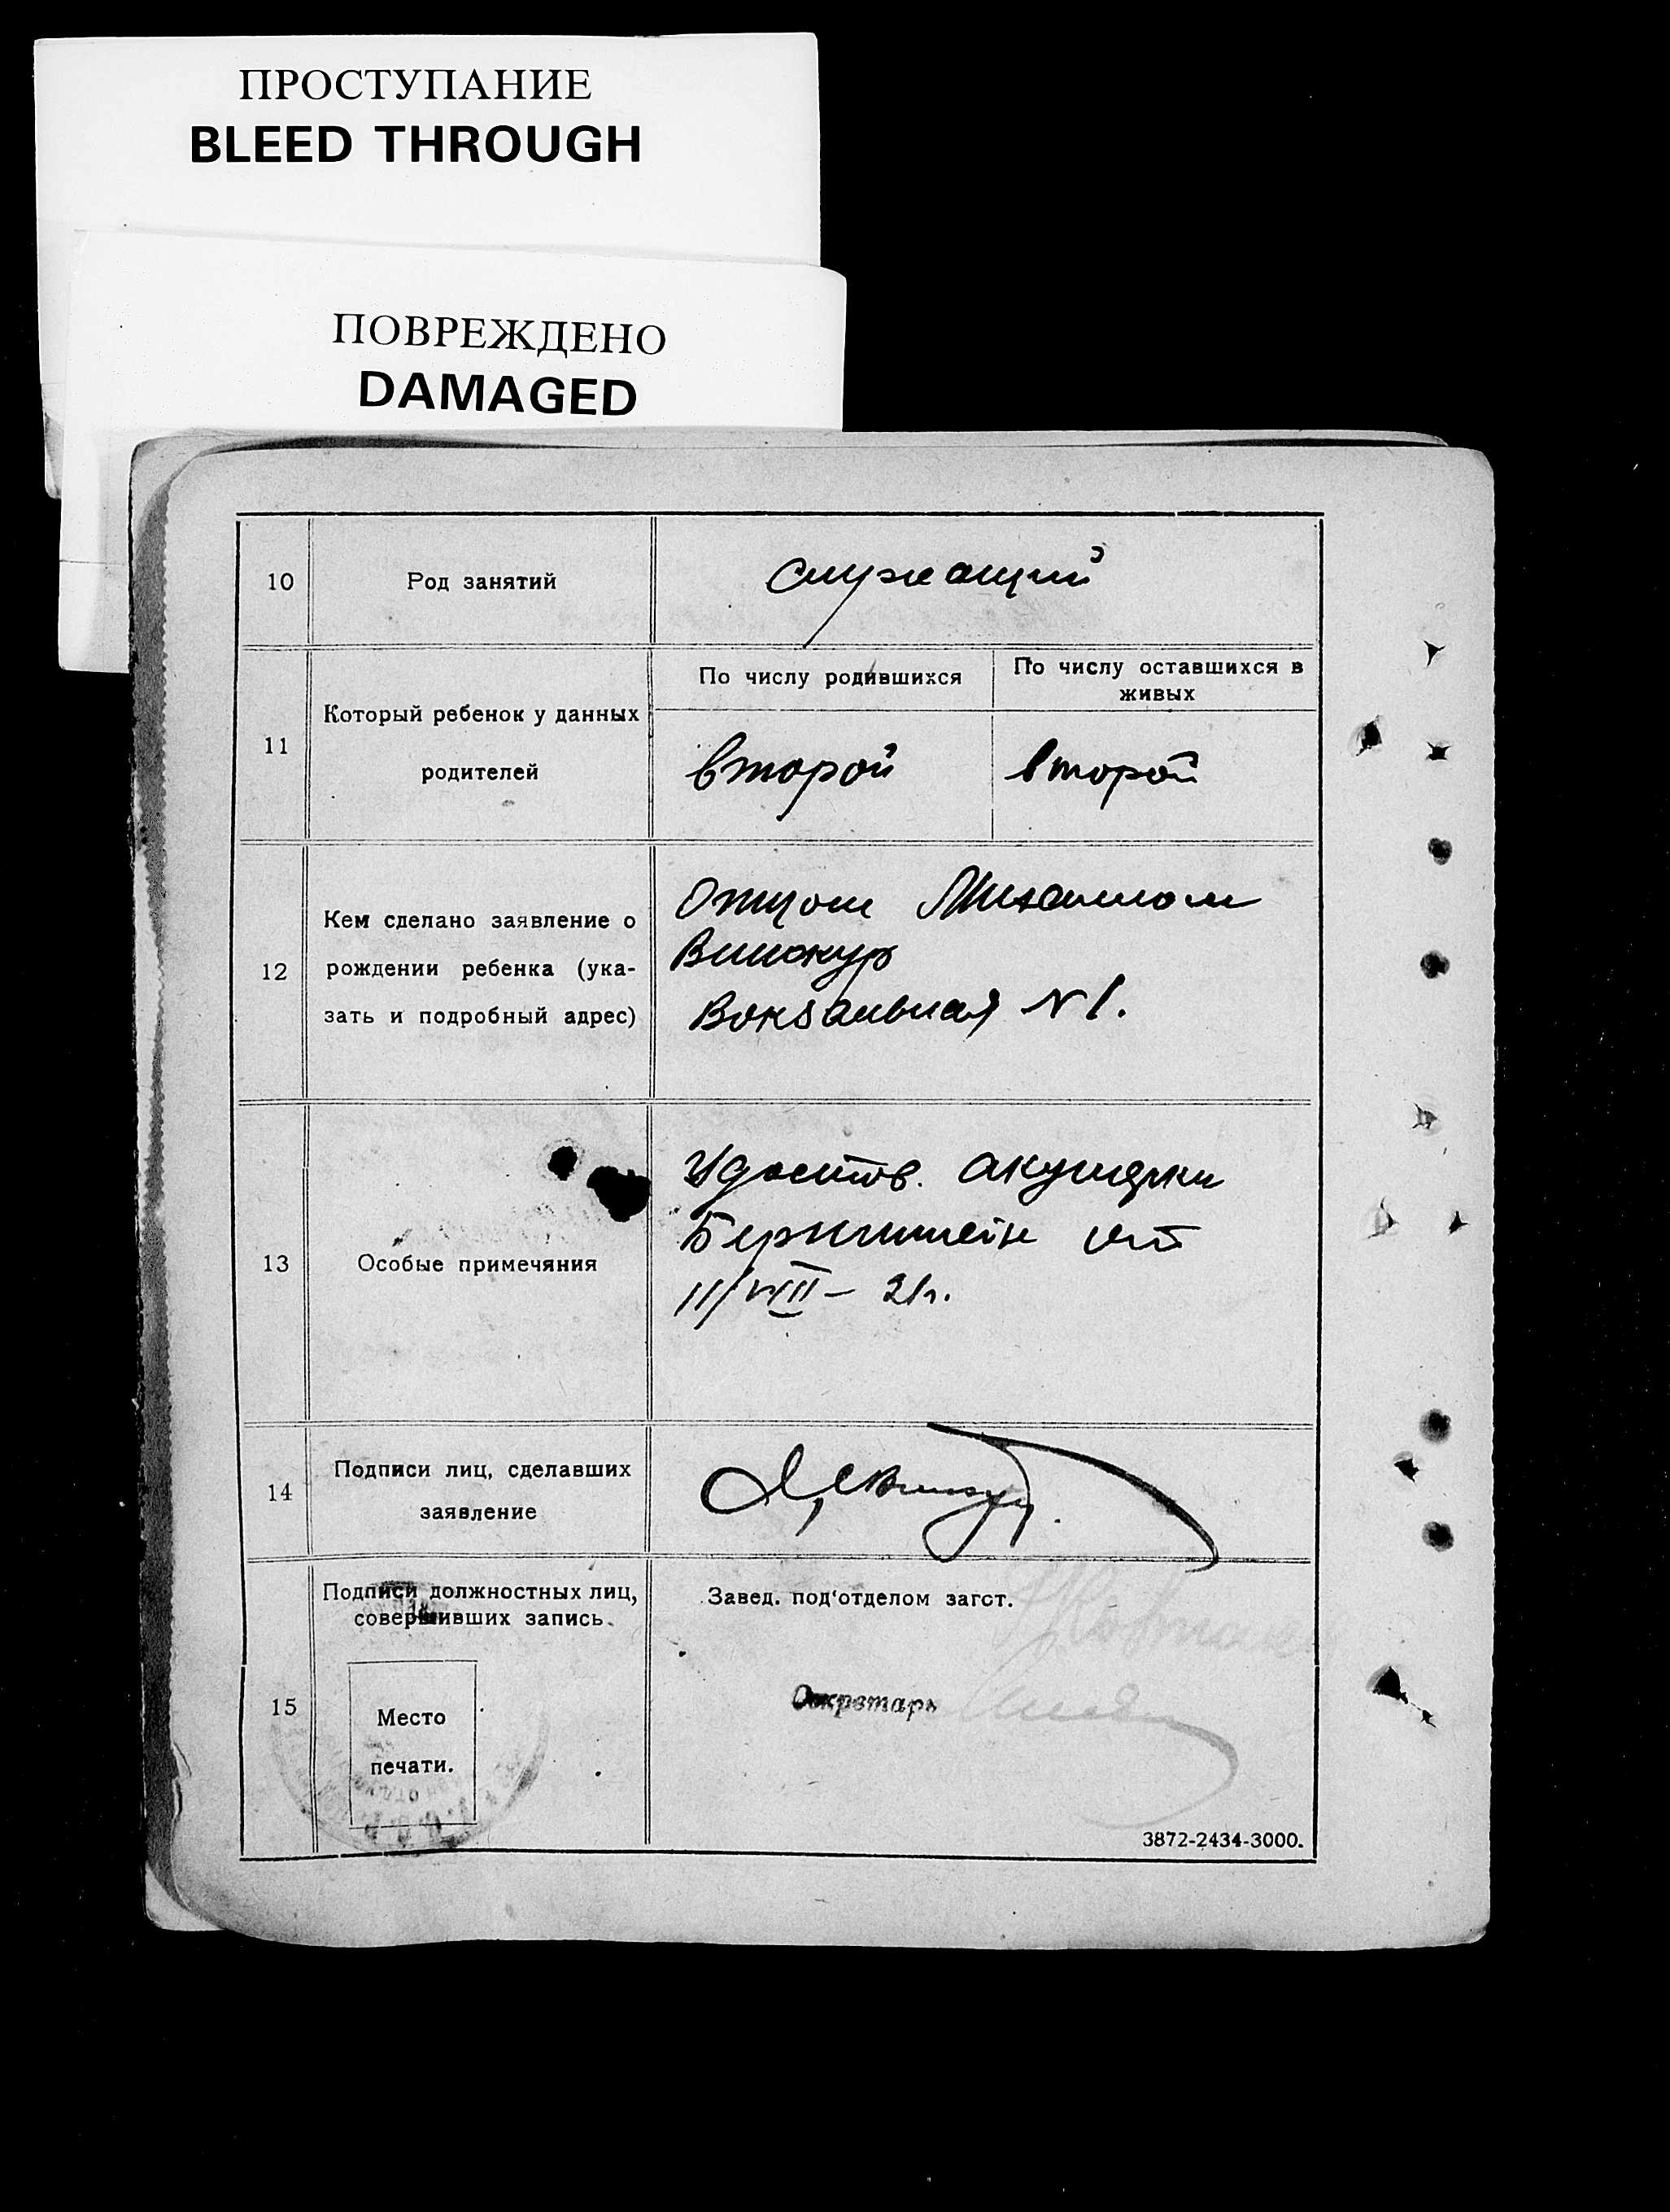 ПРОСТУПАНИЕ
BLEED THROUGH
ПОВРЕЖДЕНО
DAMAGED
10 Род занятий служащий
11 Который ребенок у данных
родителей
По числу родившихся
По числу оставшихся в
живых
второй второй
12 Кем сделано заявление о
рождении ребенка (ука-
зать и подробный адрес)
Отцом Михаилом
Винокур
Вокзальная N 1.
13 Особые примечяния
Удостов. акушерки
Бернштейн от
11/VIII - 21г.
14 Подписи лиц, сделавших
заявление
15 Подписи должностных лиц,
совершивших запись.
Место
печати.
Завед. под‘отделом загст.
Секретарь
3872-2434-3000.